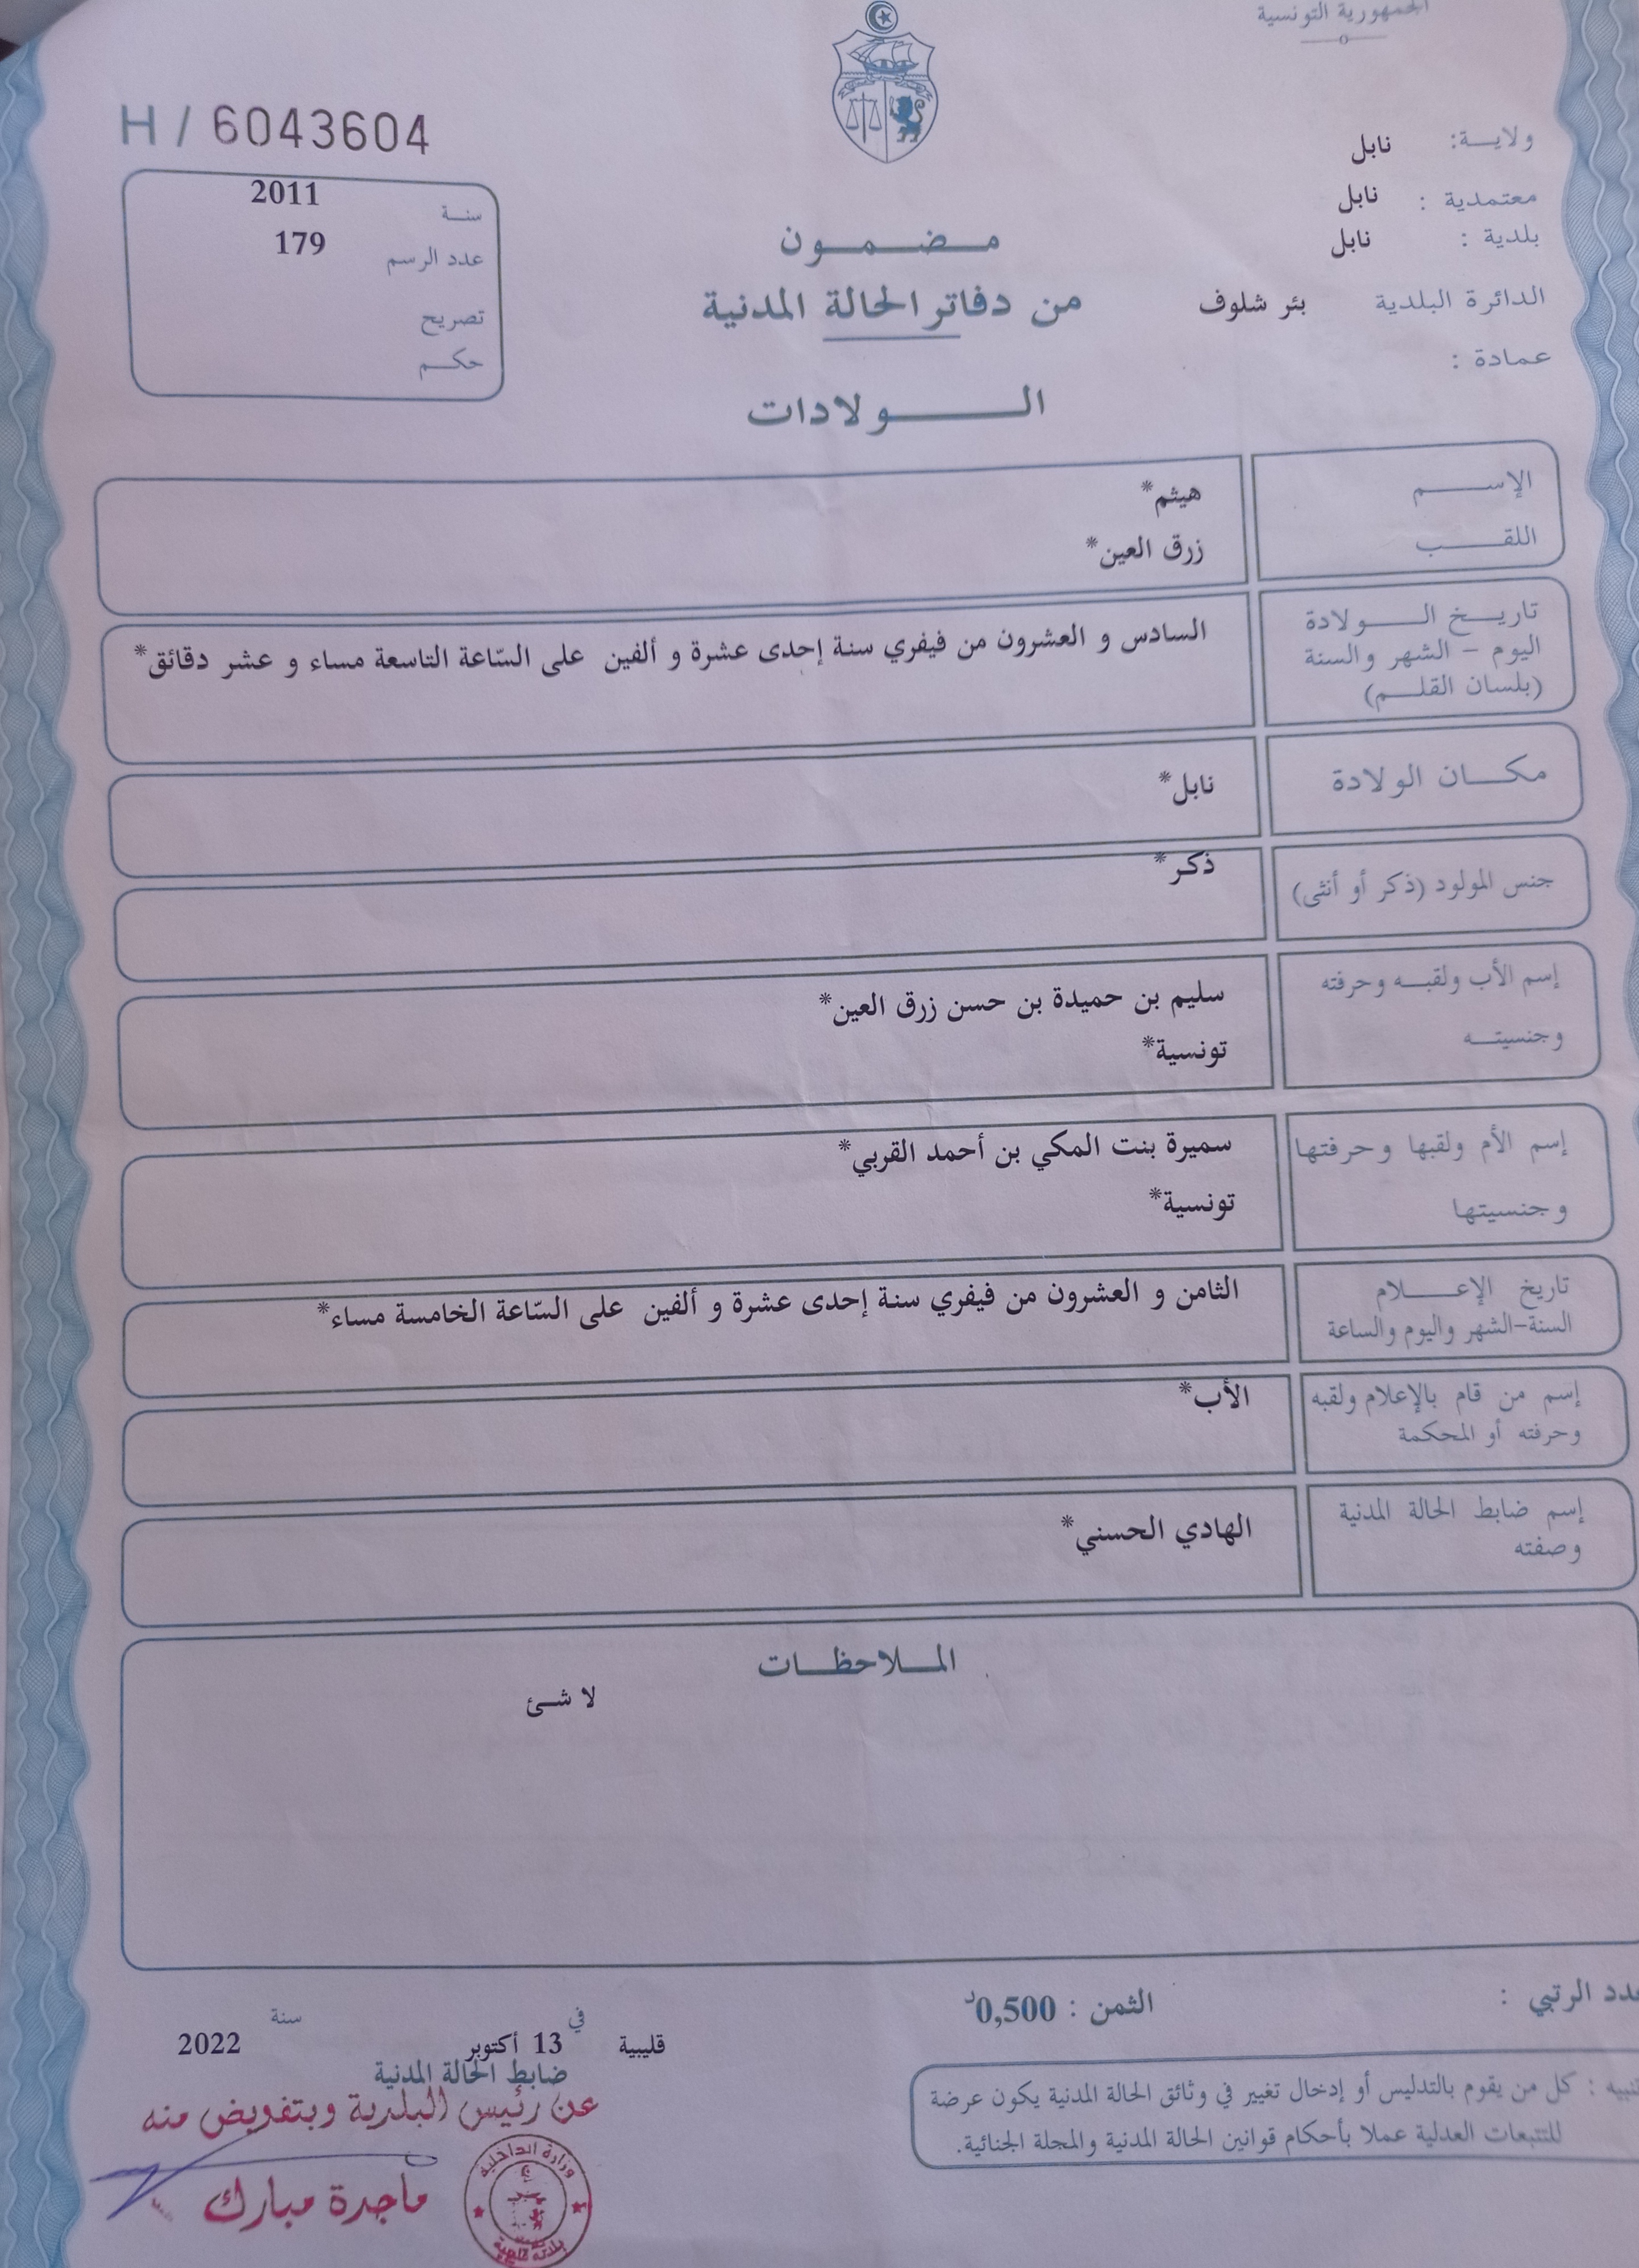 الجمهورية التونسية
H / 6043604
ولاية: نابل
معتمدية : نابل
بلدية : نابل
الدائرة البلدية بئر شلوف
عمادة :
سنة 2011
عدد الرسم 179
تصريح
حكم
مضمون
من دفاتر الحالة المدنية
الولادات
الإسم هيثم*
اللقب زرق العين*
تاريخ الولادة
اليوم - الشهر والسنة
(بلسان القلم)
السادس و العشرون من فيفري سنة إحدى عشرة و ألفين على السّاعة التاسعة مساء و عشر دقائق*
مكان الولادة نابل*
جنس المولود (ذكر أو أنثى) ذكر*
إسم الأب ولقبه وحرفته سليم بن حميدة بن حسن زرق العين*
وجنسيته تونسية*
إسم الأم ولقبها وحرفتها سميرة بنت المكي بن أحمد القربي*
وجنسيتها تونسية*
تاريخ الإعلام
السنة-الشهر واليوم والساعة
الثامن و العشرون من فيفري سنة إحدى عشرة و ألفين على السّاعة الخامسة مساء*
إسم من قام بالإعلام ولقبه
وحرفته أو المحكمة
الأب*
إسم ضابط الحالة المدنية
وصفته
الهادي الحسني*
الملاحظات
لا شئ
عدد الرتبي :
الثمن : 0,500د
تنبيه : كل من يقوم بالتدليس أو إدخال تغيير في وثائق الحالة المدنية يكون عرضة
للتتبعات العدلية عملا بأحكام قوانين الحالة المدنية والمجلة الجنائية.
قليبية في 13 أكتوبر سنة 2022
ضابط الحالة المدنية
عن رئيس البلدية وبتفويض منه
ماجدة مبارك
وزارة الداخلية
بلدية قليبية